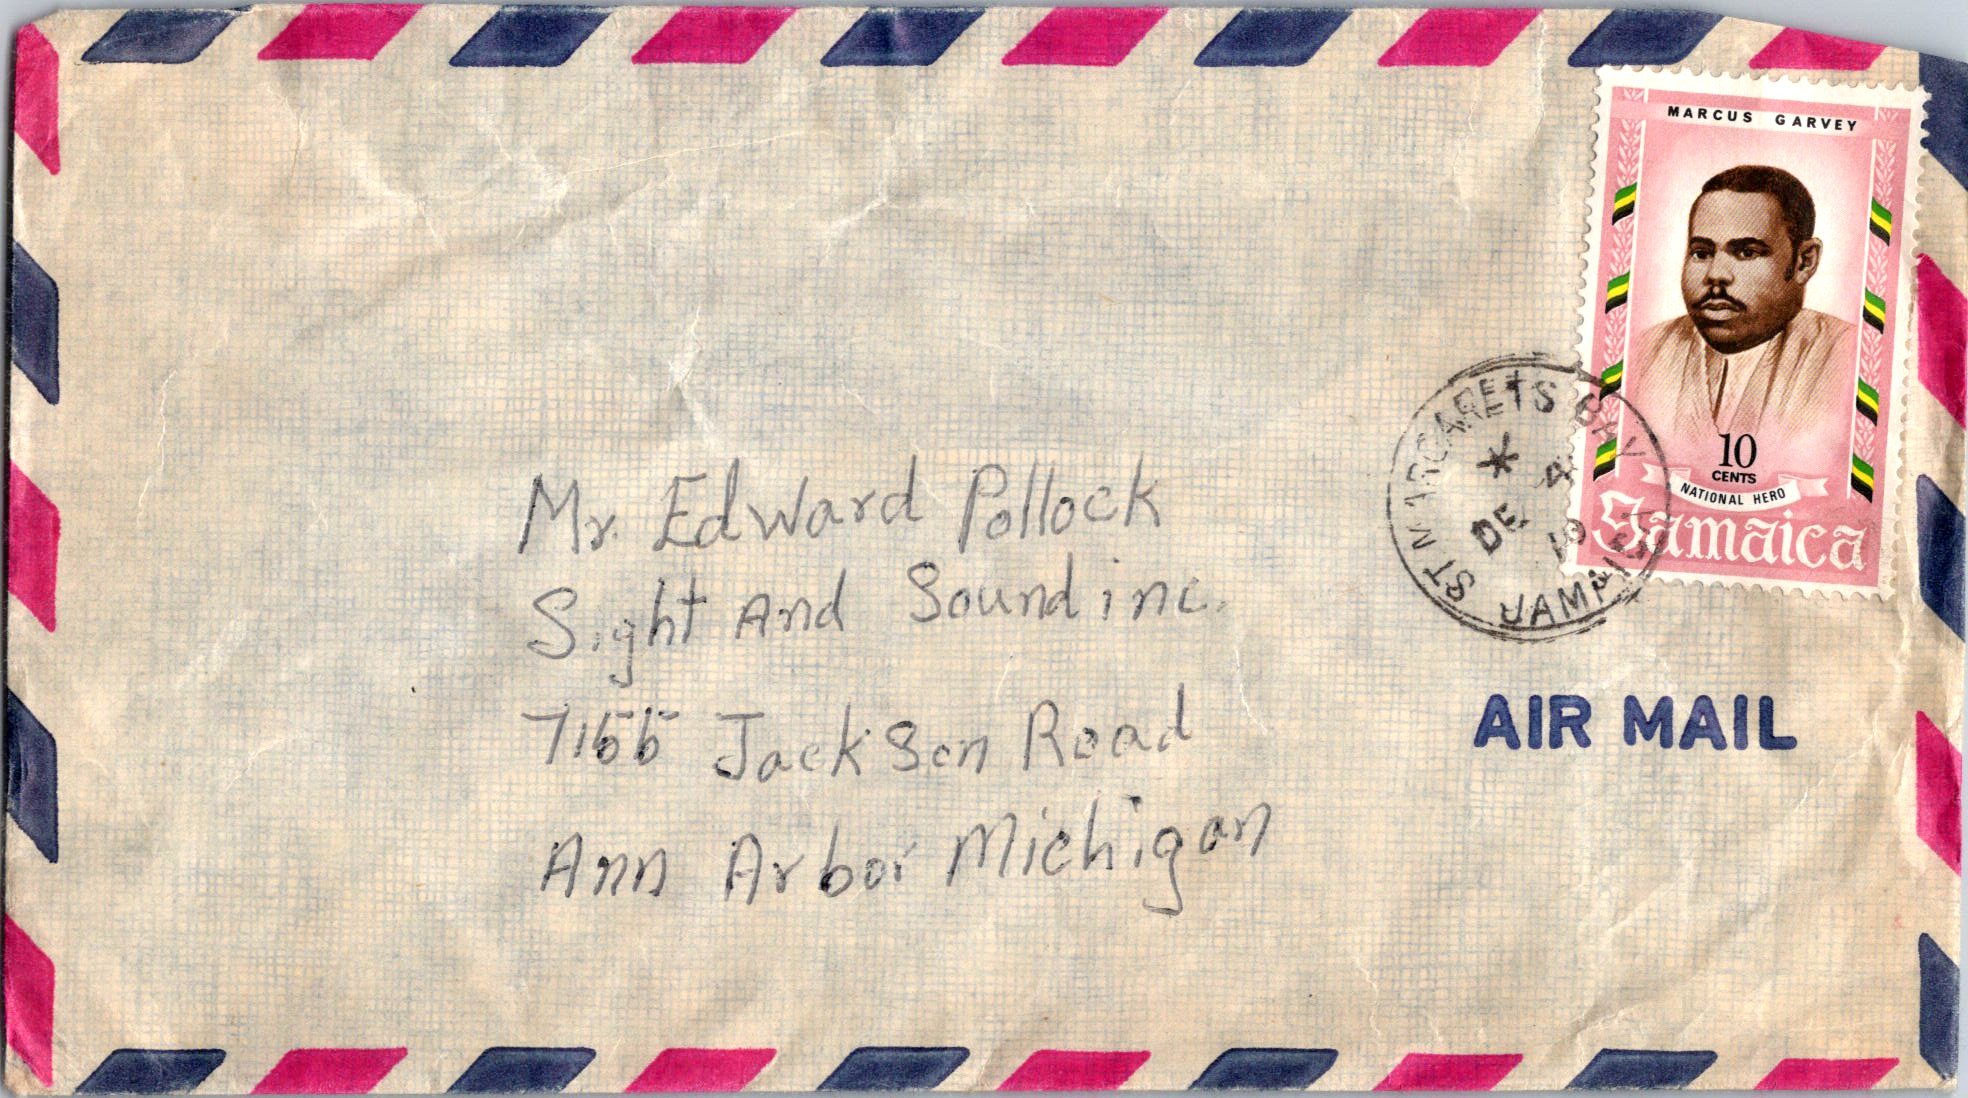 MARCUS GARVEY
10
CENTS
NATIONAL HERO
Jamaica
ST MARGARETS BAY
*
DE 4
19
JAMAICA
Mr. Edward Pollock
Sight And Sound inc.
7155 Jackson Road
Ann Arbor Michigan
AIR MAIL